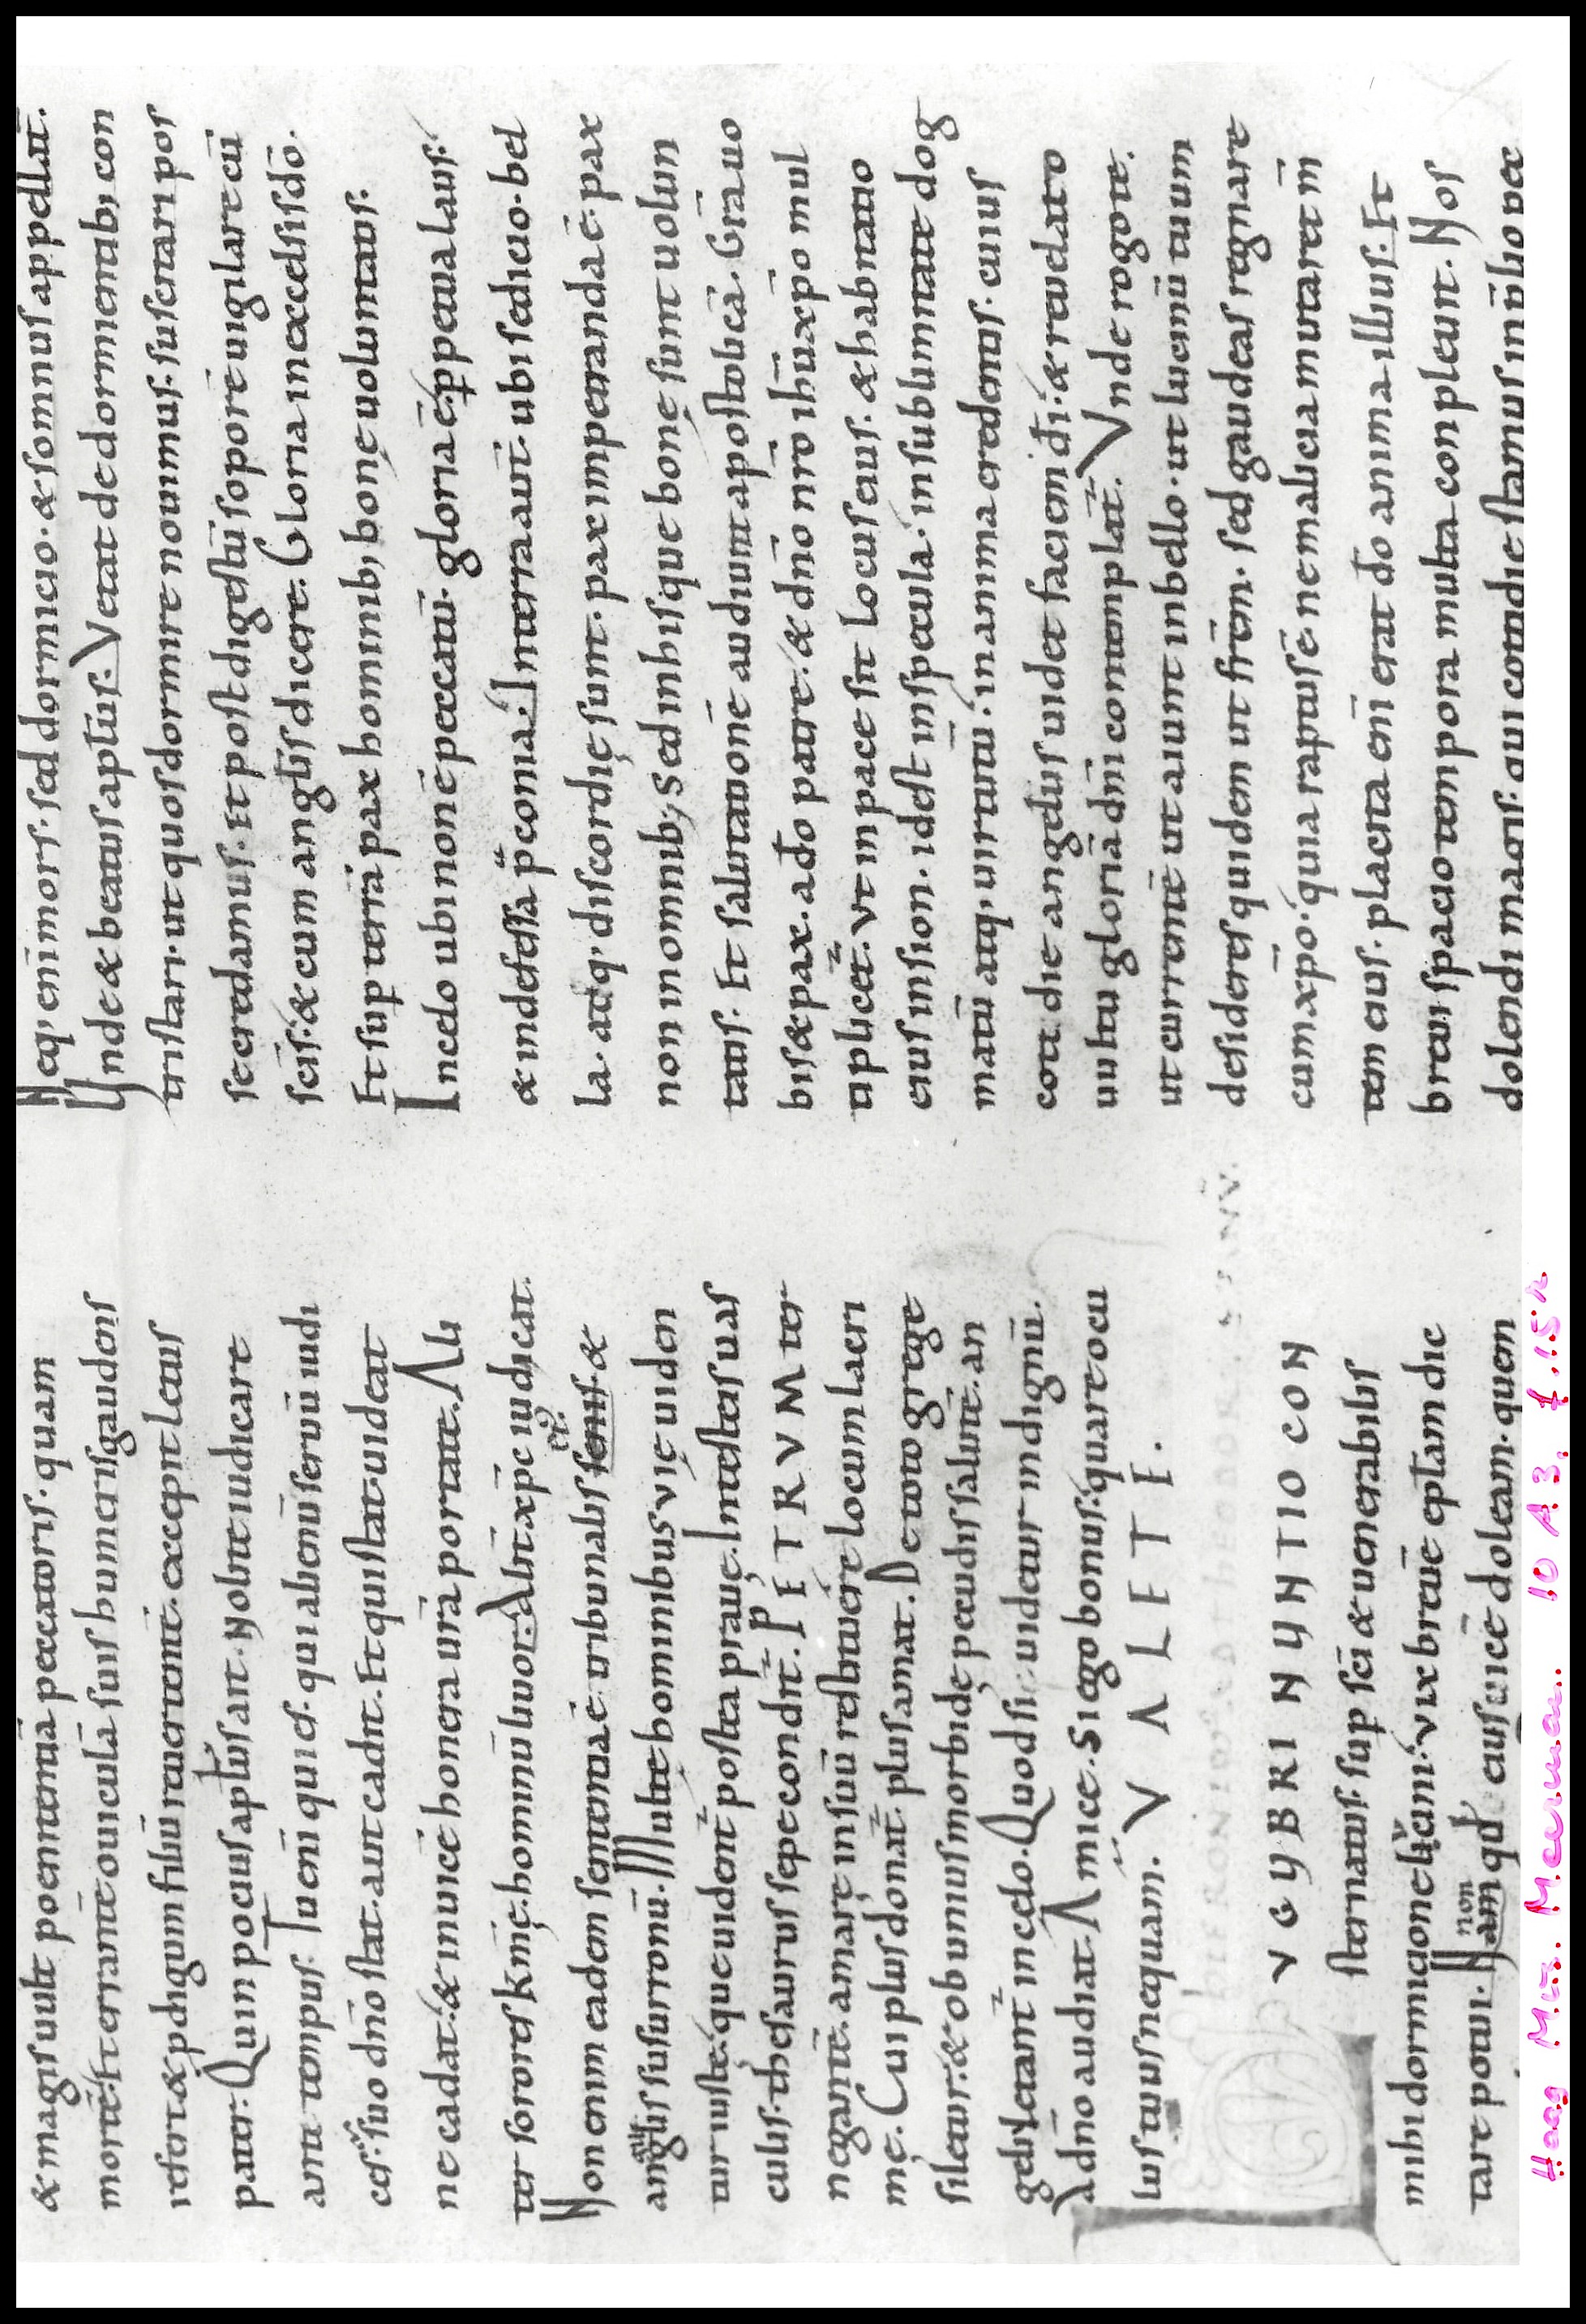 & magis uult poenitentiā peccatoris. quam
mortē. Et errantē ouiculā suis humeris gaudens
refert. & pdigum filiū reuertentē. excepit lętus
pater. Quin pocius aptłus ait. Nolite iudicare
ante tempus. Tu eni quis es. qui alienū seruū iudi
ces. suo dnō stat. aut cadit. Et qui stat. uideat
ne cadat. & inuicē honera urā portate. Ali
ter sorores kmę. hominū liuor. Alit xpē iudicat.
Non enim eadem sententia ē tribunalis & 
angulis susurronū. Multę hominibus vię uiden
tur iustę. que uident postea prauę. In testeis uas
culis. thesaurus sepe condit. PETRVM ter
negantē. amarę in suū restituere locum lacri
mę. Cui plus donat. plus amat. De toto grege
siletur. & ob unius morbidę pecudis salutē. an
geli lętant in cęlo. Quod si. uidetur indignū.
A dnō audiat. Amice. Si ego bonus. quare ocu
lus tuus nequam. VALETE.
VGVBRI NVNTIO CON
sternatus. sup scī & uenerabilis
mihi dormicione licini. vix breuē eptam dic
tare potui. Nam non eius uicē doleam. quem
Neq, enī mors. sed dormicio. & somnus appellat.
Unde & beatus aptłus. Vetat de dormientib; con
tristari. ut quos dormire nouimus. suscitari pos
se credamus. Et post digestū soporē uigilare cū
scīs. & cum angłis dicere. Gloria in excelsis dō.
Et sup terrā pax hominib; bonę uoluntatis.
In celo ubi non ē peccatū. gloria ē ppetua laus.
& indefessa pconia. In terra aut. ubi sedicio. bel
la. atq, discordię sunt. pax imperanda ē. pax
non in omnib; sed in his que bonę sunt uolun
tatis. Et salutationē audiunt apostolicā. Grā uo
bis & pax. a dō patre. & dnō nrō ihū xpō mul
tiplicet. vt in pace sit locus eius. & habitatio
eius in sion. id est in specula. in sublimitate dog
matū atq, uirtutū. in anima credentis. cuius
coti die angelus uidet faciem di. & reuelato
uultu gloriā dnī contemplat. Vnde rogo te.
ut currentē ut aiunt in bello. ut lucentiū tuum
desideres quidem ut frēm. sed gaudeas regnare
cum xpō. quia raptus ē ne malicia mutaret m
tem eius. placita enī erat dō anima illius. Et
breui spacio tempora multa conpleuit. Nos
dolendi magis. qui cotidie stamus in
Haag Mus. Meerman. 10 A 3. f. 115r